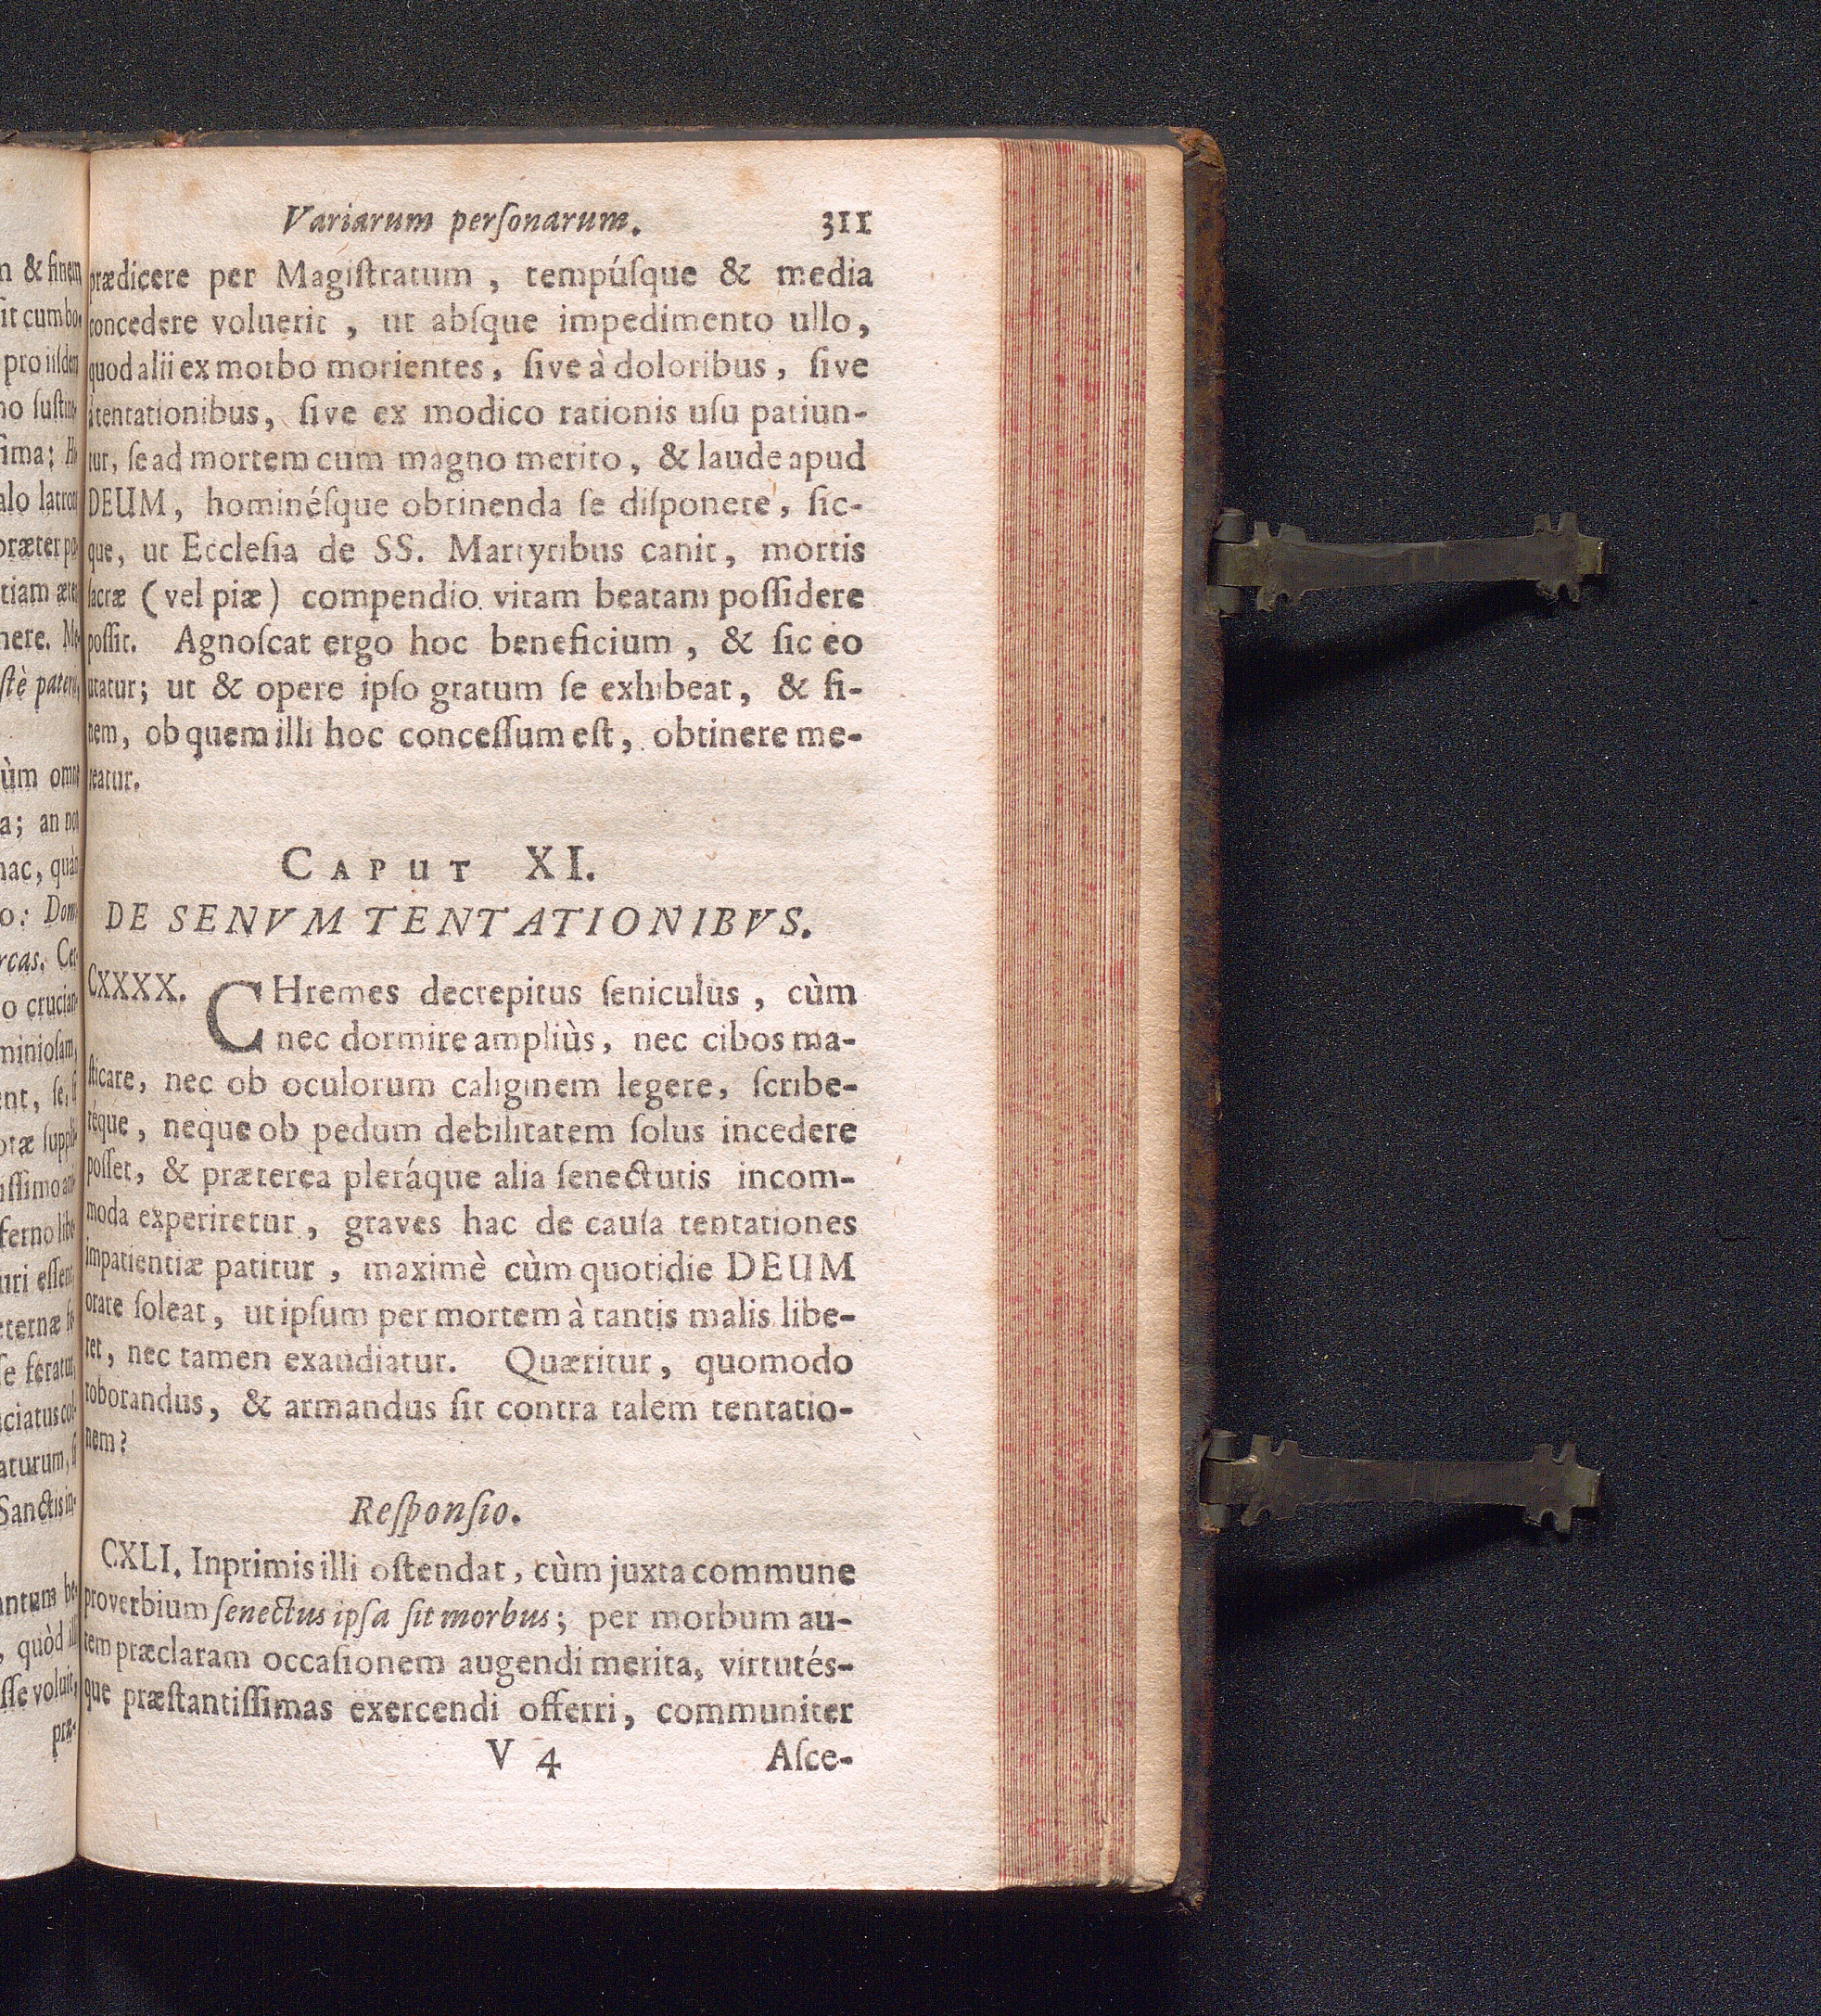 Variarum perſonarum. 311
prædicere per Magiſtratum, tempúſque & media
concedere voluerit, ut abſque impedimento ullo,
quod alii ex morbo morientes, ſive à doloribus, ſive
à tentationibus, ſive ex modico rationis uſu patiun-
tur, ſe ad mortem cum magno merito, & laude apud
DEUM, hominéſque obtinenda ſe diſponere, ſic-
que, ut Eccleſia de SS. Martyribus canit, mortis
ſacræ (vel piæ) compendio vitam beatam poſſidere
poſſit. Agnoſcat ergo hoc beneficium, & ſic eo
utatur; ut & opere ipſo gratum ſe exhibeat, & fi-
nem, ob quem illi hoc conceſſum eſt, obtinere me-
reatur.
CAPUT XI.
DE SENVM TENTATIONIBVS.
CXXXX. CHremes decrepitus ſeniculus, cùm
nec dormire ampliùs, nec cibos ma-
ſticare, nec ob oculorum caliginem legere, ſcribe-
réque, neque ob pedum debilitatem ſolus incedere
poſſet, & præterea pleráque alia ſenectutis incom-
moda experiretur, graves hac de cauſa tentationes
impatientiæ patitur, maximè cùm quotidie DEUM
orare ſoleat, ut ipſum per mortem à tantis malis libe-
ret, nec tamen exaudiatur. Quæritur, quomodo
roborandus, & armandus ſit contra talem tentatio-
nem?
Reſponſio.
CXLI. Inprimis illi oſtendat, cùm juxta commune
proverbium ſenectus ipſa ſit morbus; per morbum au-
tem præclaram occaſionem augendi merita, virtutés-
que præſtantiſſimas exercendi offerri, communiter
V 4 Aſce-